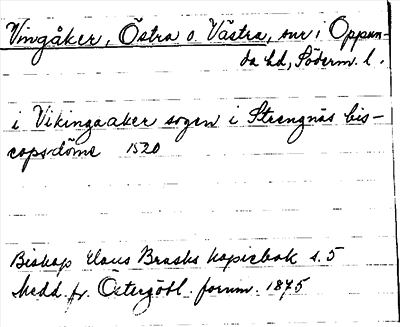 Vingåker, Östra o. Västra, snr i Oppun-
da hd, Söderm. l.
i Vikingaaker sogen i Strengnäs bis-
copsdöme 1520
Biskop Hans Brasks kopiebok s. 5
Medd. fr. Östergötl. fornm. 1875